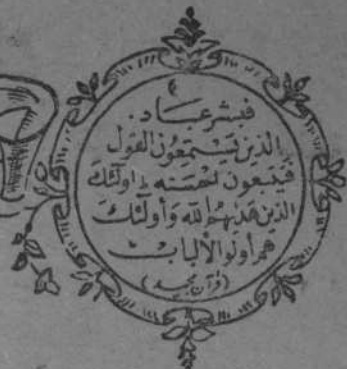 فبشر عباد.
الذين يستمعون القول
فيتبعون احسنه اولئك
الذين هدٰىهم الله وأولئك
هم أولو الألباب
(قرآن مجيد)